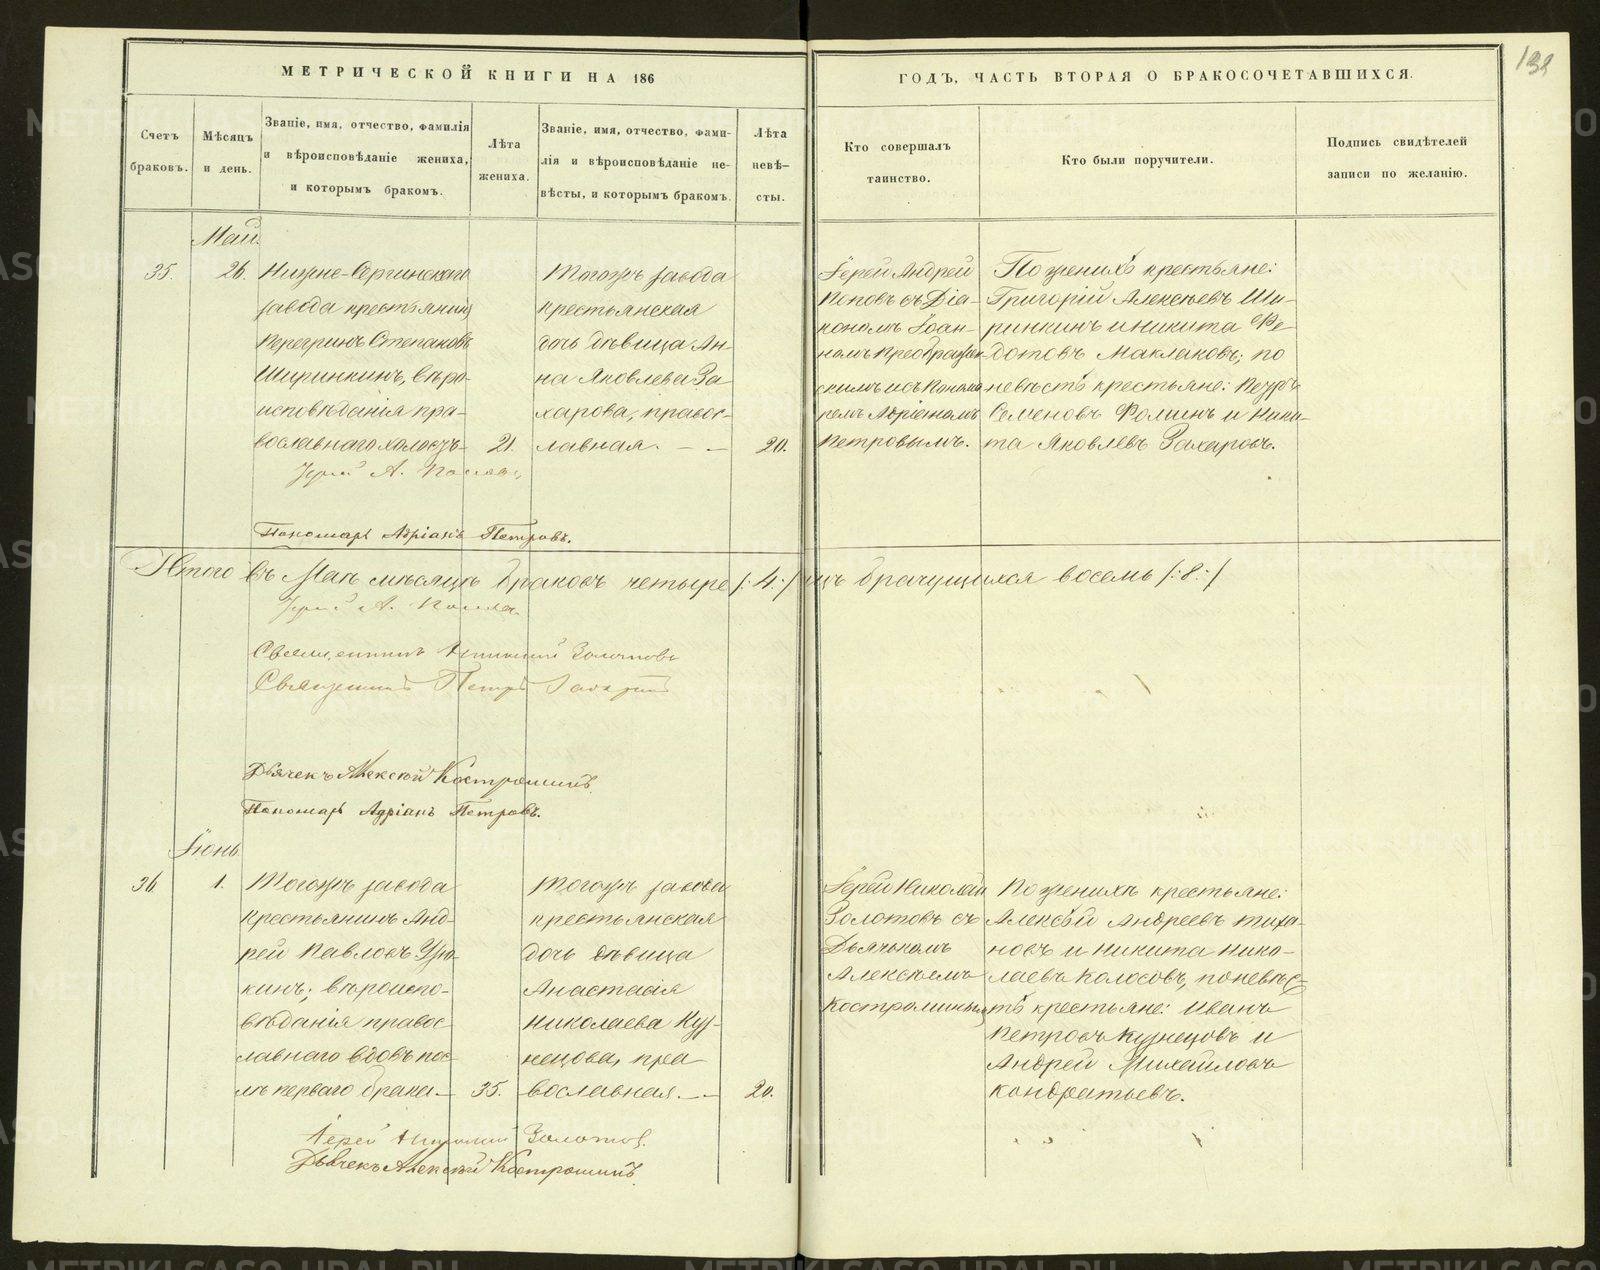 МЕТРИЧЕСКОЙ КНИГИ НА 186
Счетъ браковъ.
Мѣсяцъ и день.
Званіе, имя, отчество, фамилія
и вѣроисповѣданіе жениха,
и которымъ бракомъ.
Лѣта жениха.
Званіе, имя, отчество, фами-
лія и вѣроисповѣданіе не-
вѣсты, и которымъ бракомъ.
Лѣта невѣ-
сты.
ГОДЪ, ЧАСТЬ ВТОРАЯ О БРАКОСОЧЕТАВШИХСЯ.
138
Кто совершалъ
таинство.
Кто были поручители.
Подпись свидѣтелей
записи по желанію.
Май.
35.
26.
Нижне-Сергинскаго
завода крестьянинъ
Перегринъ Степановъ
Ширинкинъ, вѣро-
исповѣданія пра-
вославнаго холостъ
21.
Тогожъ завода
крестьянская
дочь дѣвица Ан-
на Яковлева За
харова, правос-
лавная. — —
20.
Іерей Андрей
Поповъ съ Діа-
кономъ Іоан-
номъ Преображен
скимъ и съ Понома
ремъ Адріаномъ
Петровымъ.
По женихѣ крестьяне:
Григорій Алексѣевъ Ши-
ринкинъ и Никита Фе
дотовъ Маклаковъ; по
невѣстѣ крестьяне:
Семеновъ Фоминъ и Ники-
та Яковлевъ Захаровъ.
Іерей А. Поповъ
Пономарь Адріанъ Петровъ.
Итого въ Маѣ мѣсяцѣ браковъ четыре /:4:/ ицъ брачущихся восемь /:8:/
Іерей А. Поповъ
Священникъ Николай Золотовъ
Священникъ Петръ
Дьячекъ Алексѣй Костроминъ.
Пономарь Адріанъ Петровъ.
Іюнь.
36
1.
Тогожъ завода
крестьянинъ Анд-
рей Павловъ
кинъ; вѣроиспо-
вѣданія правос
лавнаго вдовъ пос-
лѣ перваго брака —
35.
Тогожъ завода
крестьянская
дочь дѣвица
Анастасія
Николаева Куз-
нецова, пра
вославная. — —
20.
Іерей Николай
Золотовъ съ
Дьячкомъ
Алексѣемъ
Костроминымъ
По женихѣ крестьяне:
Алексѣй Андреевъ Тихо-
новъ и Никита Нико-
лаевъ Колосовъ, по невѣс-
тѣ крестьяне: Иванъ
Петровъ Кузнецовъ и
Андрей Михайловъ
Кондратьевъ.
Іерей Николай Золотовъ.
Дьячекъ Алексѣй Костроминъ.
METRIKI.GASO-URAL.RU